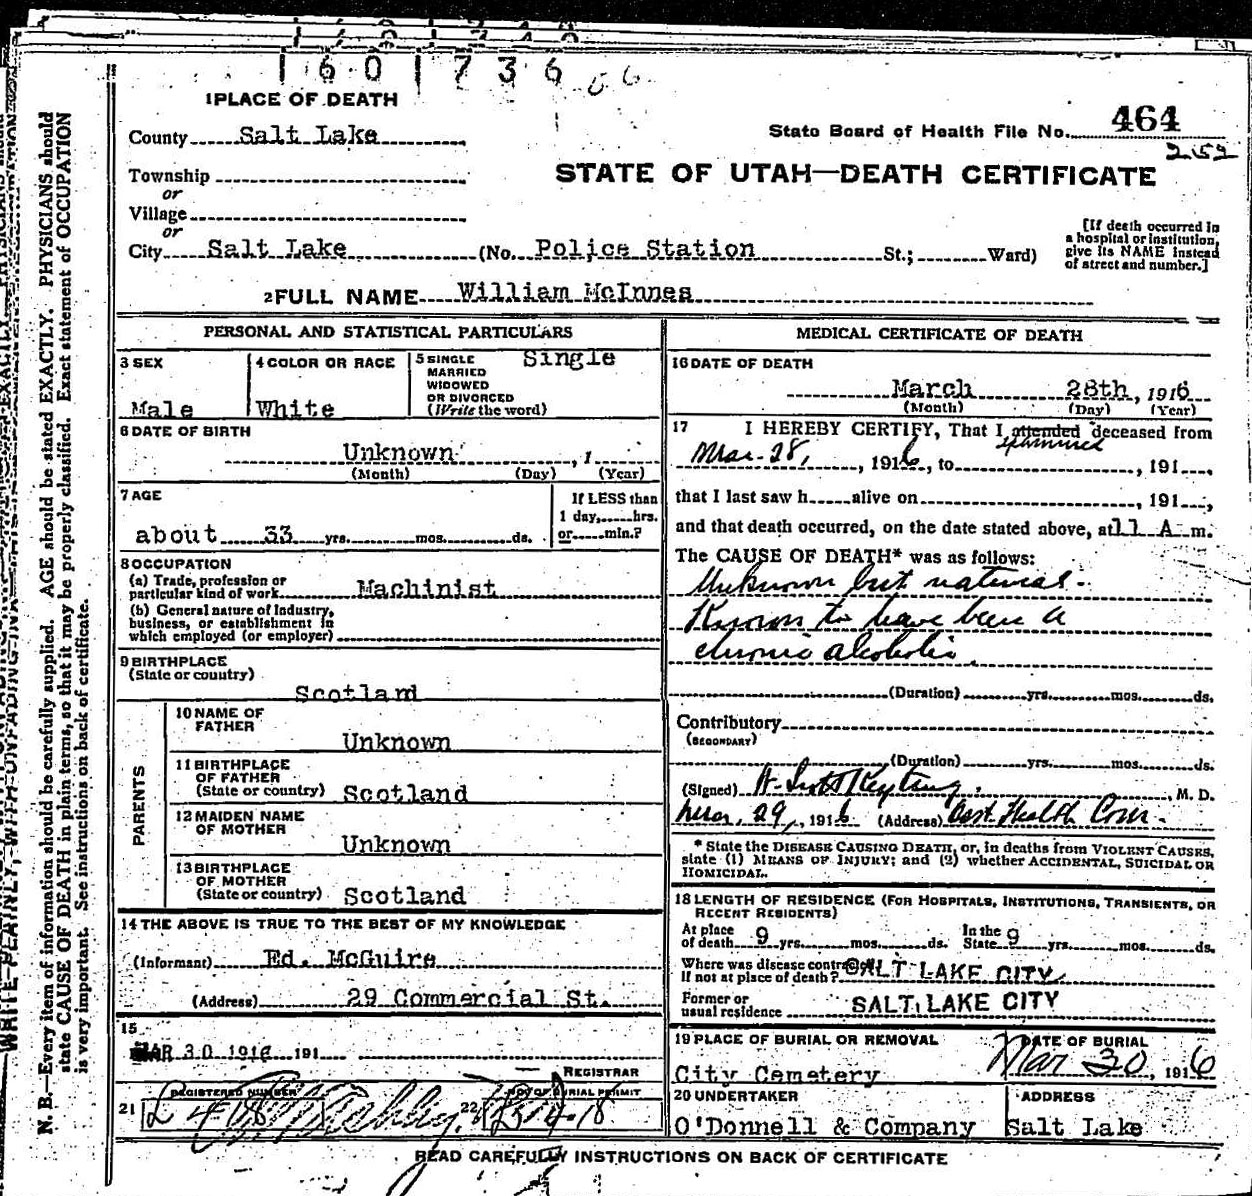 1 6 0 1 7 3 6
1PLACE OF DEATH
County Salt Lake
State Board of Health File No. 464
252
Township
or
Village
or
STATE OF UTAH—DEATH CERTIFICATE
City Salt Lake (No. Police Station St.; Ward)
[If death occurred in
a hospital or institution,
give its NAME instead
of street and number.]
2FULL NAME William McInnes
PERSONAL AND STATISTICAL PARTICULARS
3 SEX
Male
4 COLOR OR RACE
White
5 SINGLE
MARRIED
WIDOWED
OR DIVORCED
(Write the word)
Single
6 DATE OF BIRTH
Unknown , 1
(Month) (Day) (Year)
7 AGE
about 33 yrs. mos. ds.
If LESS than
1 day, hrs.
or min.?
8 OCCUPATION
(a) Trade, profession or
particular kind of work Machinist
(b) General nature of Industry,
business, or establishment in
which employed (or employer)
9 BIRTHPLACE
(State or country)
Scotland
PARENTS
10 NAME OF
FATHER
Unknown
11 BIRTHPLACE
OF FATHER
(State or country) Scotland
12 MAIDEN NAME
OF MOTHER
Unknown
13 BIRTHPLACE
OF MOTHER
(State or country) Scotland
14 THE ABOVE IS TRUE TO THE BEST OF MY KNOWLEDGE
(Informant) Ed. McGuire
(Address) 29 Commercial St.
15
MAR 30 1916 191
REGISTRAR
REGISTERED NUMBER
NO. OF BURIAL PERMIT
21
22
MEDICAL CERTIFICATE OF DEATH
16 DATE OF DEATH
March 28th, 1916
(Month) (Day) (Year)
17 I HEREBY CERTIFY, That I attended deceased from
examined
Mar-28, , 1916, to , 191 ,
that I last saw h alive on , 191 ,
and that death occurred, on the date stated above, at 11 A m.
The CAUSE OF DEATH* was as follows:
Unknown but natural.
Known to have been a
chronic alcoholic.
(Duration) yrs. mos. ds.
Contributory
(SECONDARY)
(Duration) yrs. mos. ds.
(Signed) , M. D.
Mar. 29, , 1916 (Address) Health Com.
* State the DISEASE CAUSING DEATH, or, in deaths from VIOLENT CAUSES,
state (1) MEANS OF INJURY; and (2) whether ACCIDENTAL, SUICIDAL OR
HOMICIDAL.
18 LENGTH OF RESIDENCE (FOR HOSPITALS, INSTITUTIONS, TRANSIENTS, OR
RECENT RESIDENTS)
At place
of death 9 yrs. mos. ds.
In the
State 9 yrs. mos. ds.
Where was disease contracted
If not at place of death? SALT LAKE CITY
Former or
usual residence SALT LAKE CITY
19 PLACE OF BURIAL OR REMOVAL
City Cemetery
DATE OF BURIAL
Mar 30, 1916
20 UNDERTAKER
O'Donnell & Company
ADDRESS
Salt Lake
READ CAREFULLY INSTRUCTIONS ON BACK OF CERTIFICATE
N. B.—Every item of information should be carefully supplied. AGE should be stated EXACTLY. PHYSICIANS should
state CAUSE OF DEATH in plain terms, so that it may be properly classified. Exact statement of OCCUPATION
is very important. See instructions on back of certificate.